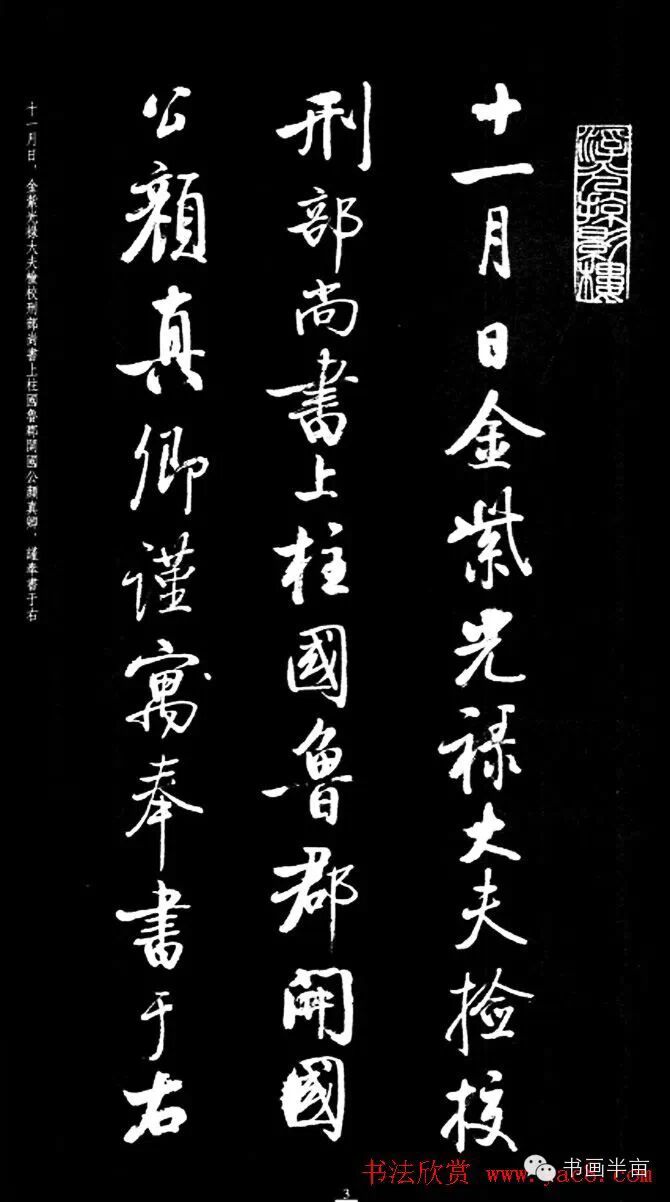 十一月日金紫光禄大夫捡校
刑部尚書上柱國魯郡開國
公顔真卿謹寓奉書于右
十一月日，金紫光禄大夫檢校刑部尚書上柱國魯郡開國公顔真卿，謹奉書于右
书法欣赏 www.yac8.com
书画半亩
3